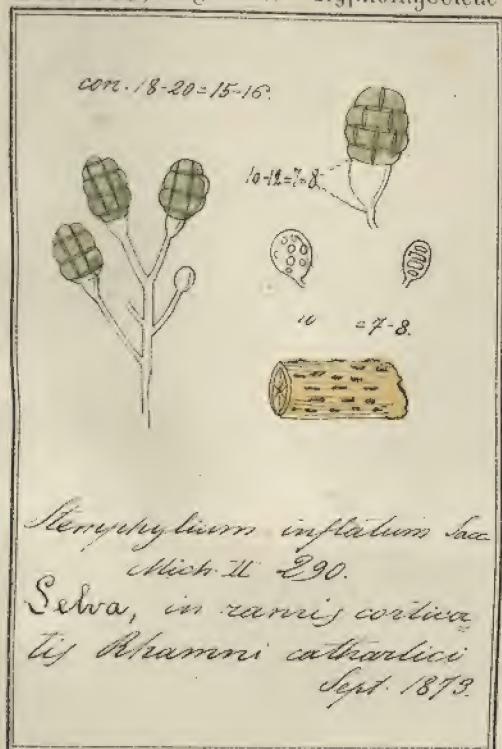 con. 18-20=15-16.
10-12=7-8
10 =7-8.
Stemphylium inflatum Sacc
Mich. II 290.
Selva, in ramis cortica=
tis Rhamni cathartici
Sept. 1873.